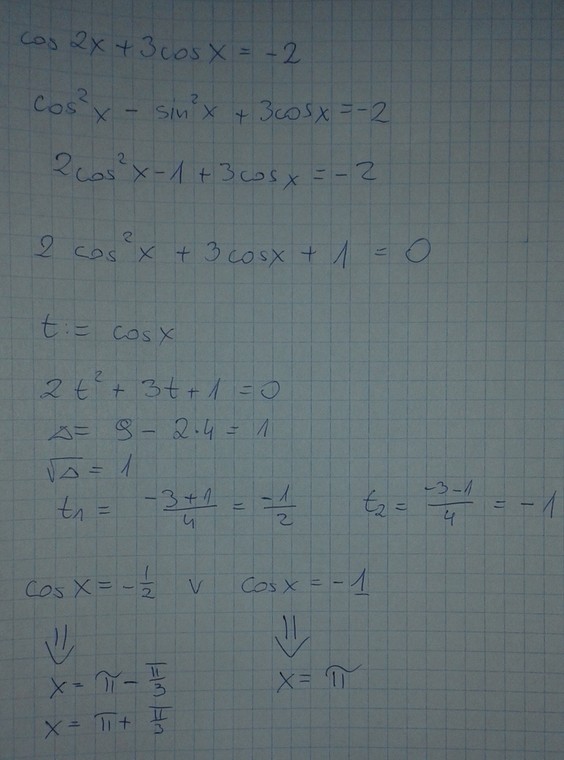 cos 2x + 3cosx = -2
cos²x - sin²x + 3cosx = -2
2cos²x - 1 + 3cosx = -2
2 cos²x + 3cosx + 1 = 0
t := cosx
2t² + 3t + 1 = 0
Δ = 9 - 2·4 = 1
√Δ = 1
t₁ = (-3+1)/4 = -1/2 t₂ = (-3-1)/4 = -1
cosx = -1/2 ∨ cosx = -1
⇓ ⇓
x = π - π/3 x = π
x = π + π/3